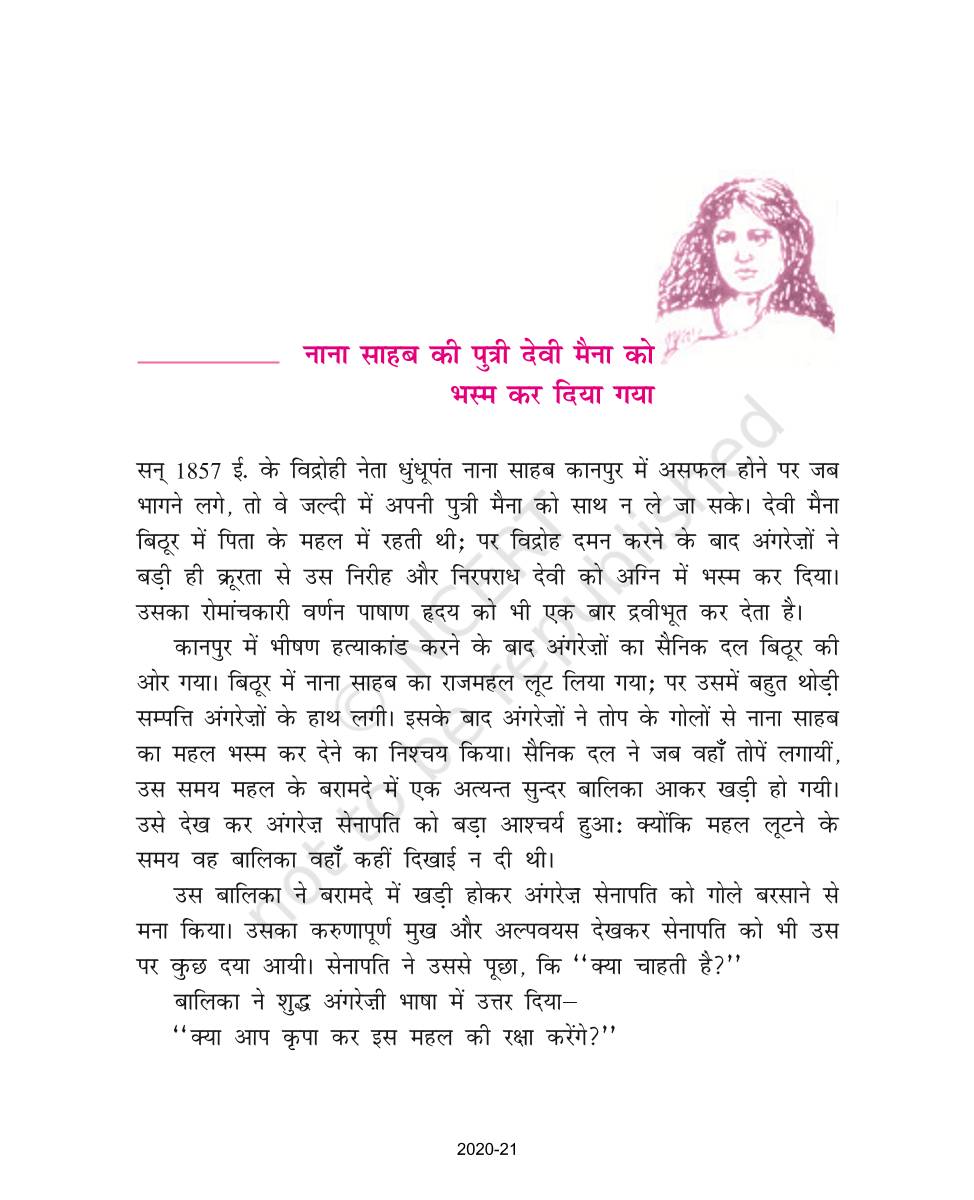 नाना साहब की पुत्री देवी मैना को
भस्म कर दिया गया
सन् 1857 ई. के विद्रोही नेता धुंधूपंत नाना साहब कानपुर में असफल होने पर जब
भागने लगे, तो वे जल्दी में अपनी पुत्री मैना को साथ न ले जा सके। देवी मैना
बिठूर में पिता के महल में रहती थी; पर विद्रोह दमन करने के बाद अंगरेज़ों ने
बड़ी ही क्रूरता से उस निरीह और निरपराध देवी को अग्नि में भस्म कर दिया।
उसका रोमांचकारी वर्णन पाषाण हृदय को भी एक बार द्रवीभूत कर देता है।
कानपुर में भीषण हत्याकांड करने के बाद अंगरेज़ों का सैनिक दल बिठूर की
ओर गया। बिठूर में नाना साहब का राजमहल लूट लिया गया; पर उसमें बहुत थोड़ी
सम्पत्ति अंगरेज़ों के हाथ लगी। इसके बाद अंगरेज़ों ने तोप के गोलों से नाना साहब
का महल भस्म कर देने का निश्चय किया। सैनिक दल ने जब वहाँ तोपें लगायीं,
उस समय महल के बरामदे में एक अत्यन्त सुन्दर बालिका आकर खड़ी हो गयी।
उसे देख कर अंगरेज़ सेनापति को बड़ा आश्चर्य हुआः क्योंकि महल लूटने के
समय वह बालिका वहाँ कहीं दिखाई न दी थी।
उस बालिका ने बरामदे में खड़ी होकर अंगरेज़ सेनापति को गोले बरसाने से
मना किया। उसका करुणापूर्ण मुख और अल्पवयस देखकर सेनापति को भी उस
पर कुछ दया आयी। सेनापति ने उससे पूछा, कि ‘‘क्या चाहती है?’’
बालिका ने शुद्ध अंगरेज़ी भाषा में उत्तर दिया–
‘‘क्या आप कृपा कर इस महल की रक्षा करेंगे?’’
© NCERT
not to be republished
2020-21